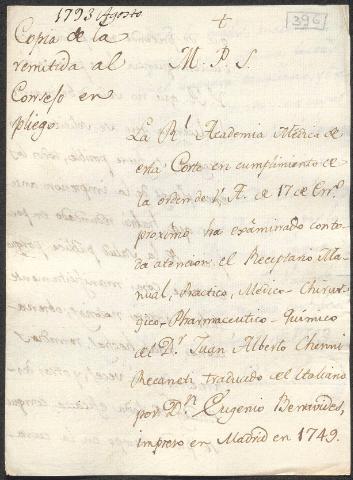 1793 Agosto
396
Copia de la
remitida al
Consejo en
pliego
+
M. P. S.
La Rl. Academia Medica de
esta Corte en cumplimiento de
la orden de V. A. de 17 de Enº
proximo ha examinado con to-
da atencion el Recetario Ma-
nual, Practico, Medico-Chirur-
gico-Pharmaceutico-Quimico
del Dr. Juan Alberto
Recaneti traducido del Italiano
por Dn. Eugenio Benavides,
impreso en Madrid en 1749.